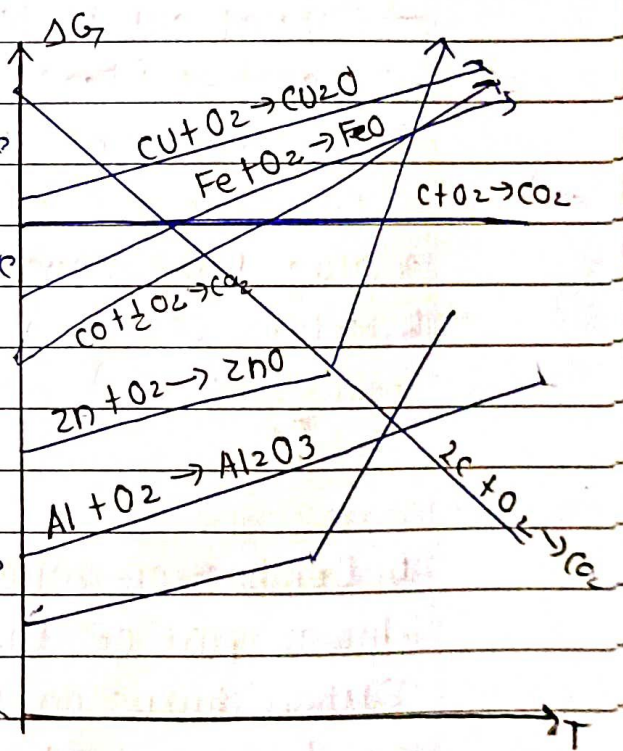 ΔG
CU+O2→CU2O
Fe+O2→FeO
C+O2→CO2
CO+½O2→CO2
Zn+O2→ZnO
Al+O2→Al2O3
2C+O2→CO2
T